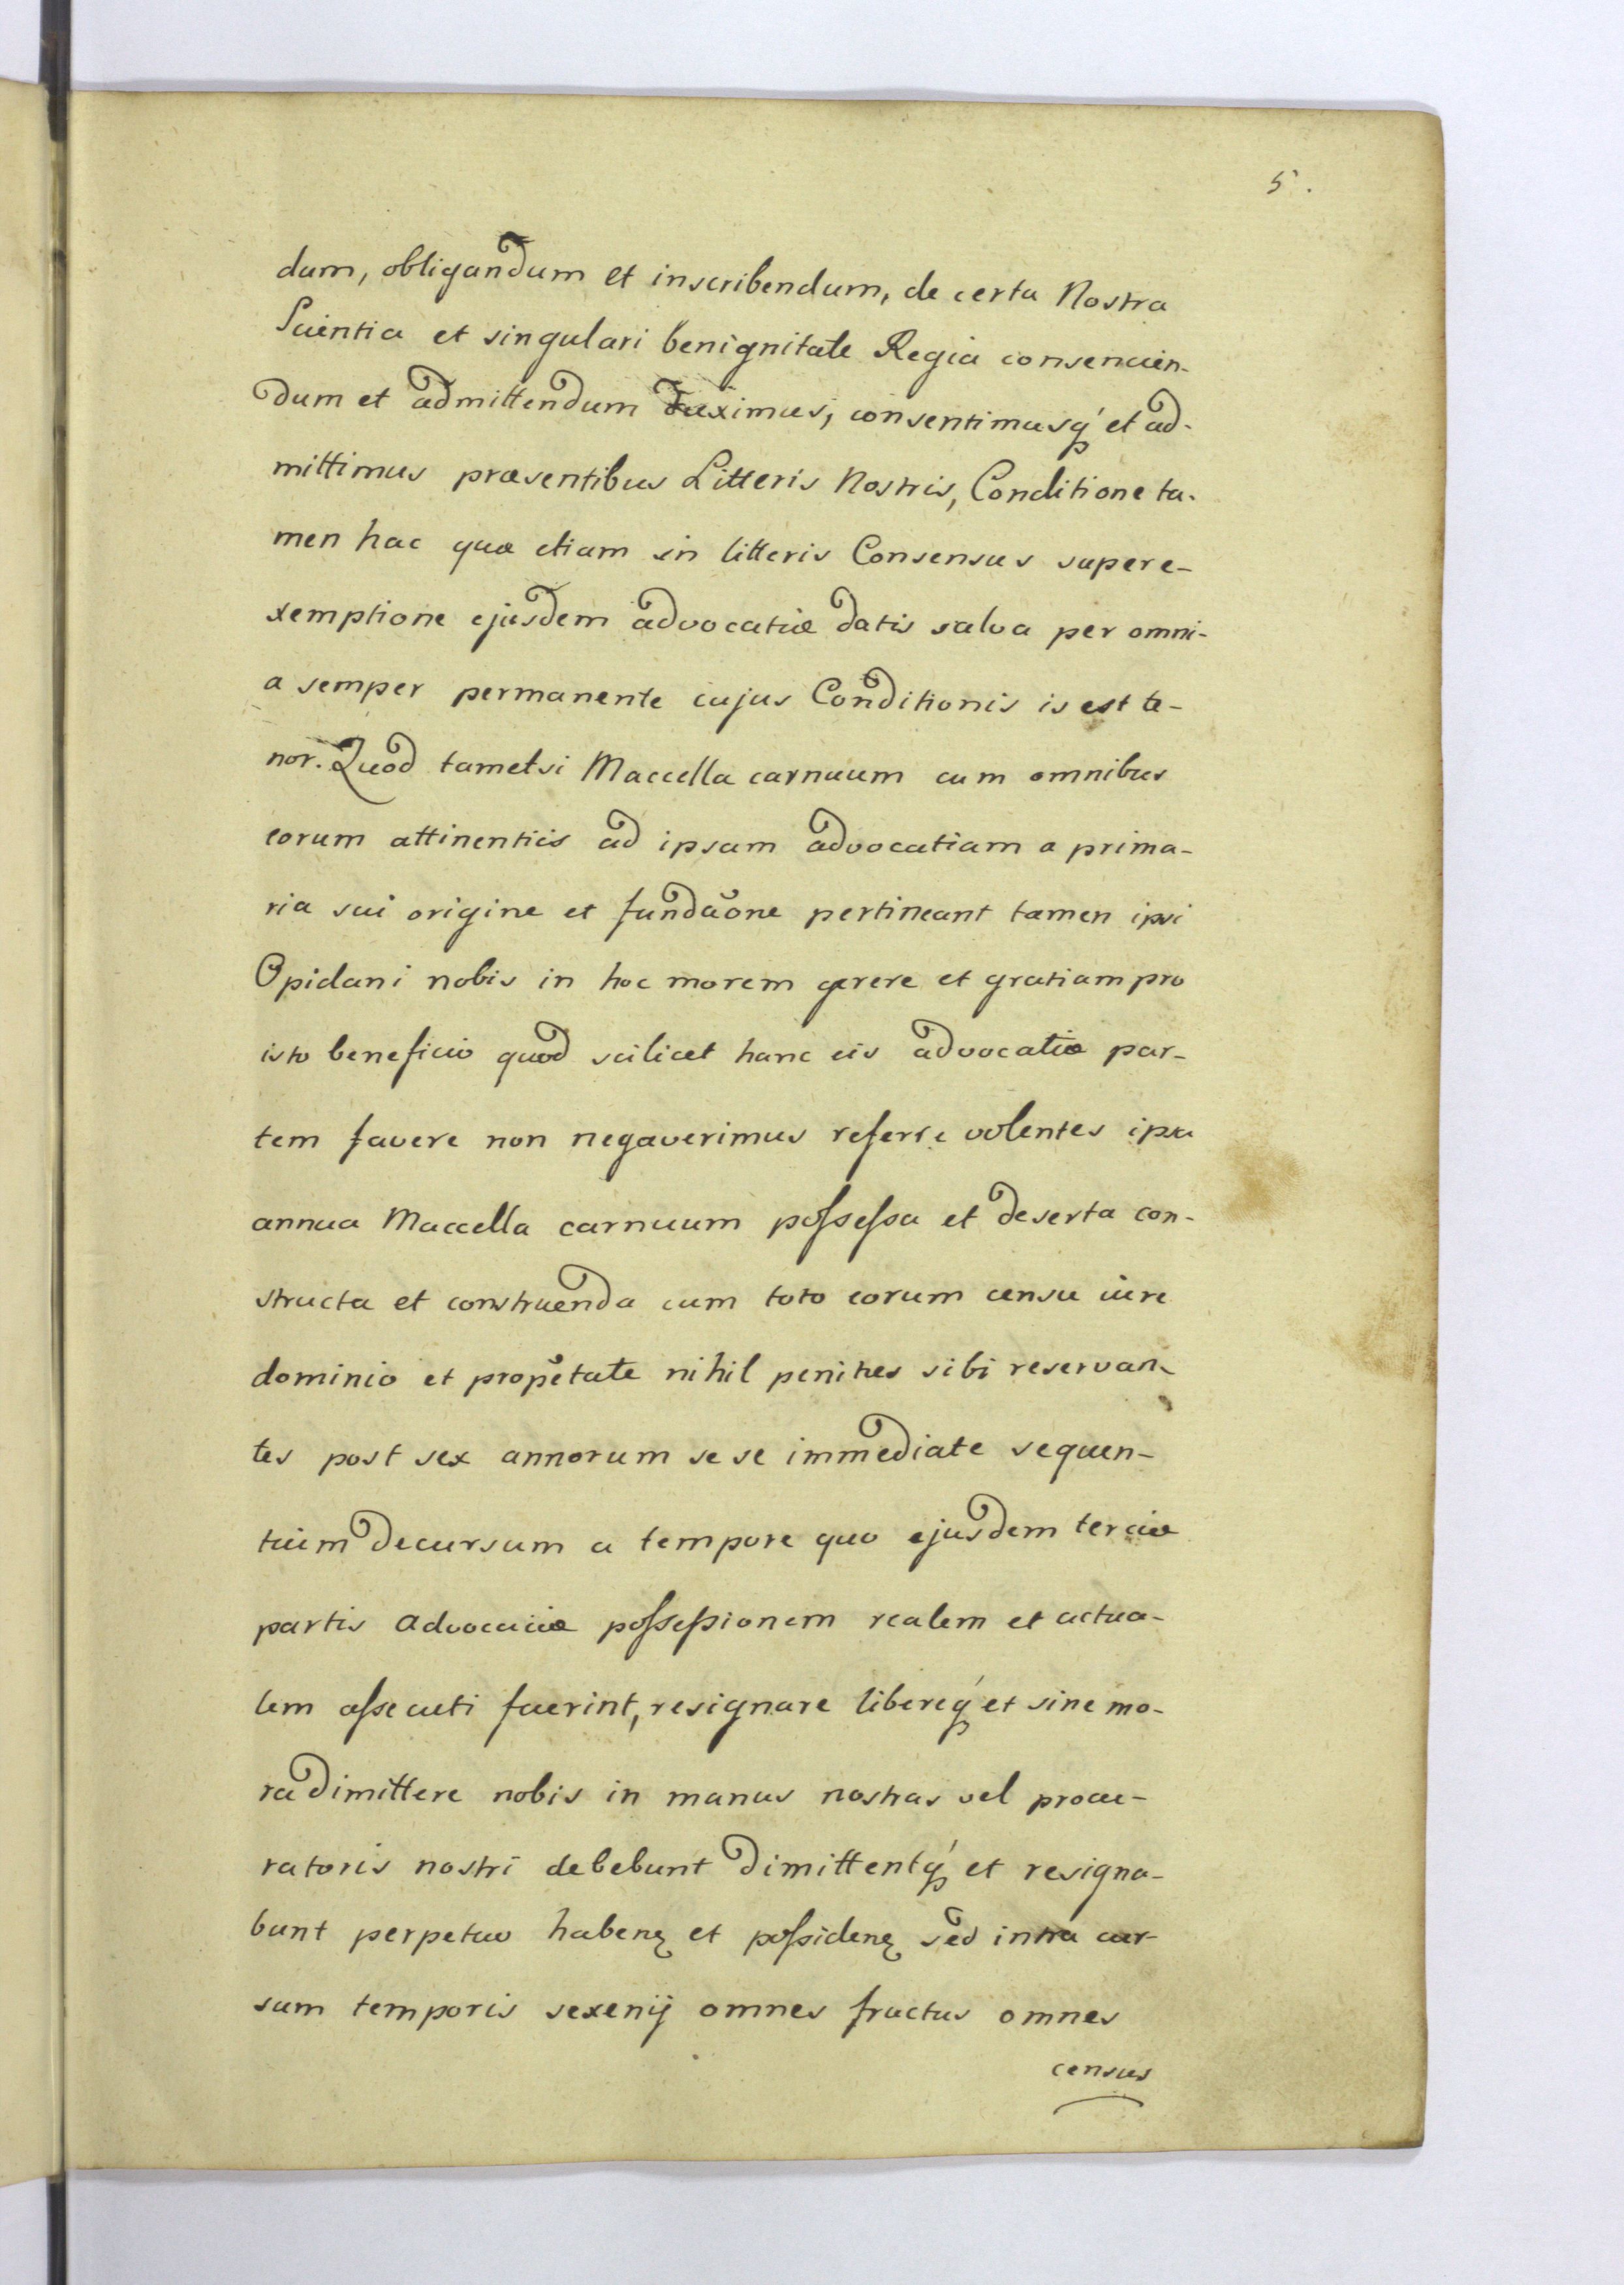 5.
dum, obligandum et inscribendum, de certa Nostra
Scientia et singulari benignitate Regia consencien-
dum et admittendum duximus, consentimusq́ et ad-
mittimus præsentibus Litteris Nostris, Conditione ta-
men hac quæ etiam in litteris Consensus super e-
xemptione ejusdem advocatiæ datis salva per omni-
a semper permanente cujus Conditionis is est te-
nor. Quod tametsi Maccella carnuum cum omnibus
eorum attinentiis ad ipsam advocatiam a prima-
ria sui origine et fundaõne pertineant tamen ipsi
Opidani nobis in hoc morem gerere et gratiam pro
isto beneficio quod scilicet hanc eis advocatiæ par-
tem favere non negaverimus referre volentes ipsa
annua Maccella carnuum poſseſsa et deserta con-
structa et construenda cum toto eorum censu iure
dominio et propẽtate nihil penitus sibi reservan-
tes post sex annorum se se immediate sequen-
tium decursum a tempore quo ejusdem terciæ
partis advocaciæ poſseſsionem realem et actua-
lem aſsecuti fuerint, resignare libereq́ et sine mo-
ra dimittere nobis in manus nostras vel procu-
ratoris nostri debebunt dimittentq́ et resigna-
bunt perpetuo habenꝫ et poſsidenꝫ sed intra cur-
sum temporis sexenij omnes fructus omnes
census